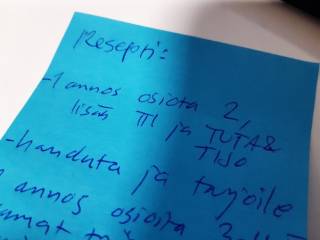 Resepti:
-1 annos osiota 2,
lisää III ja TUTA&
TIJO
-hauduta ja tarjoile
1 annos osioita 3